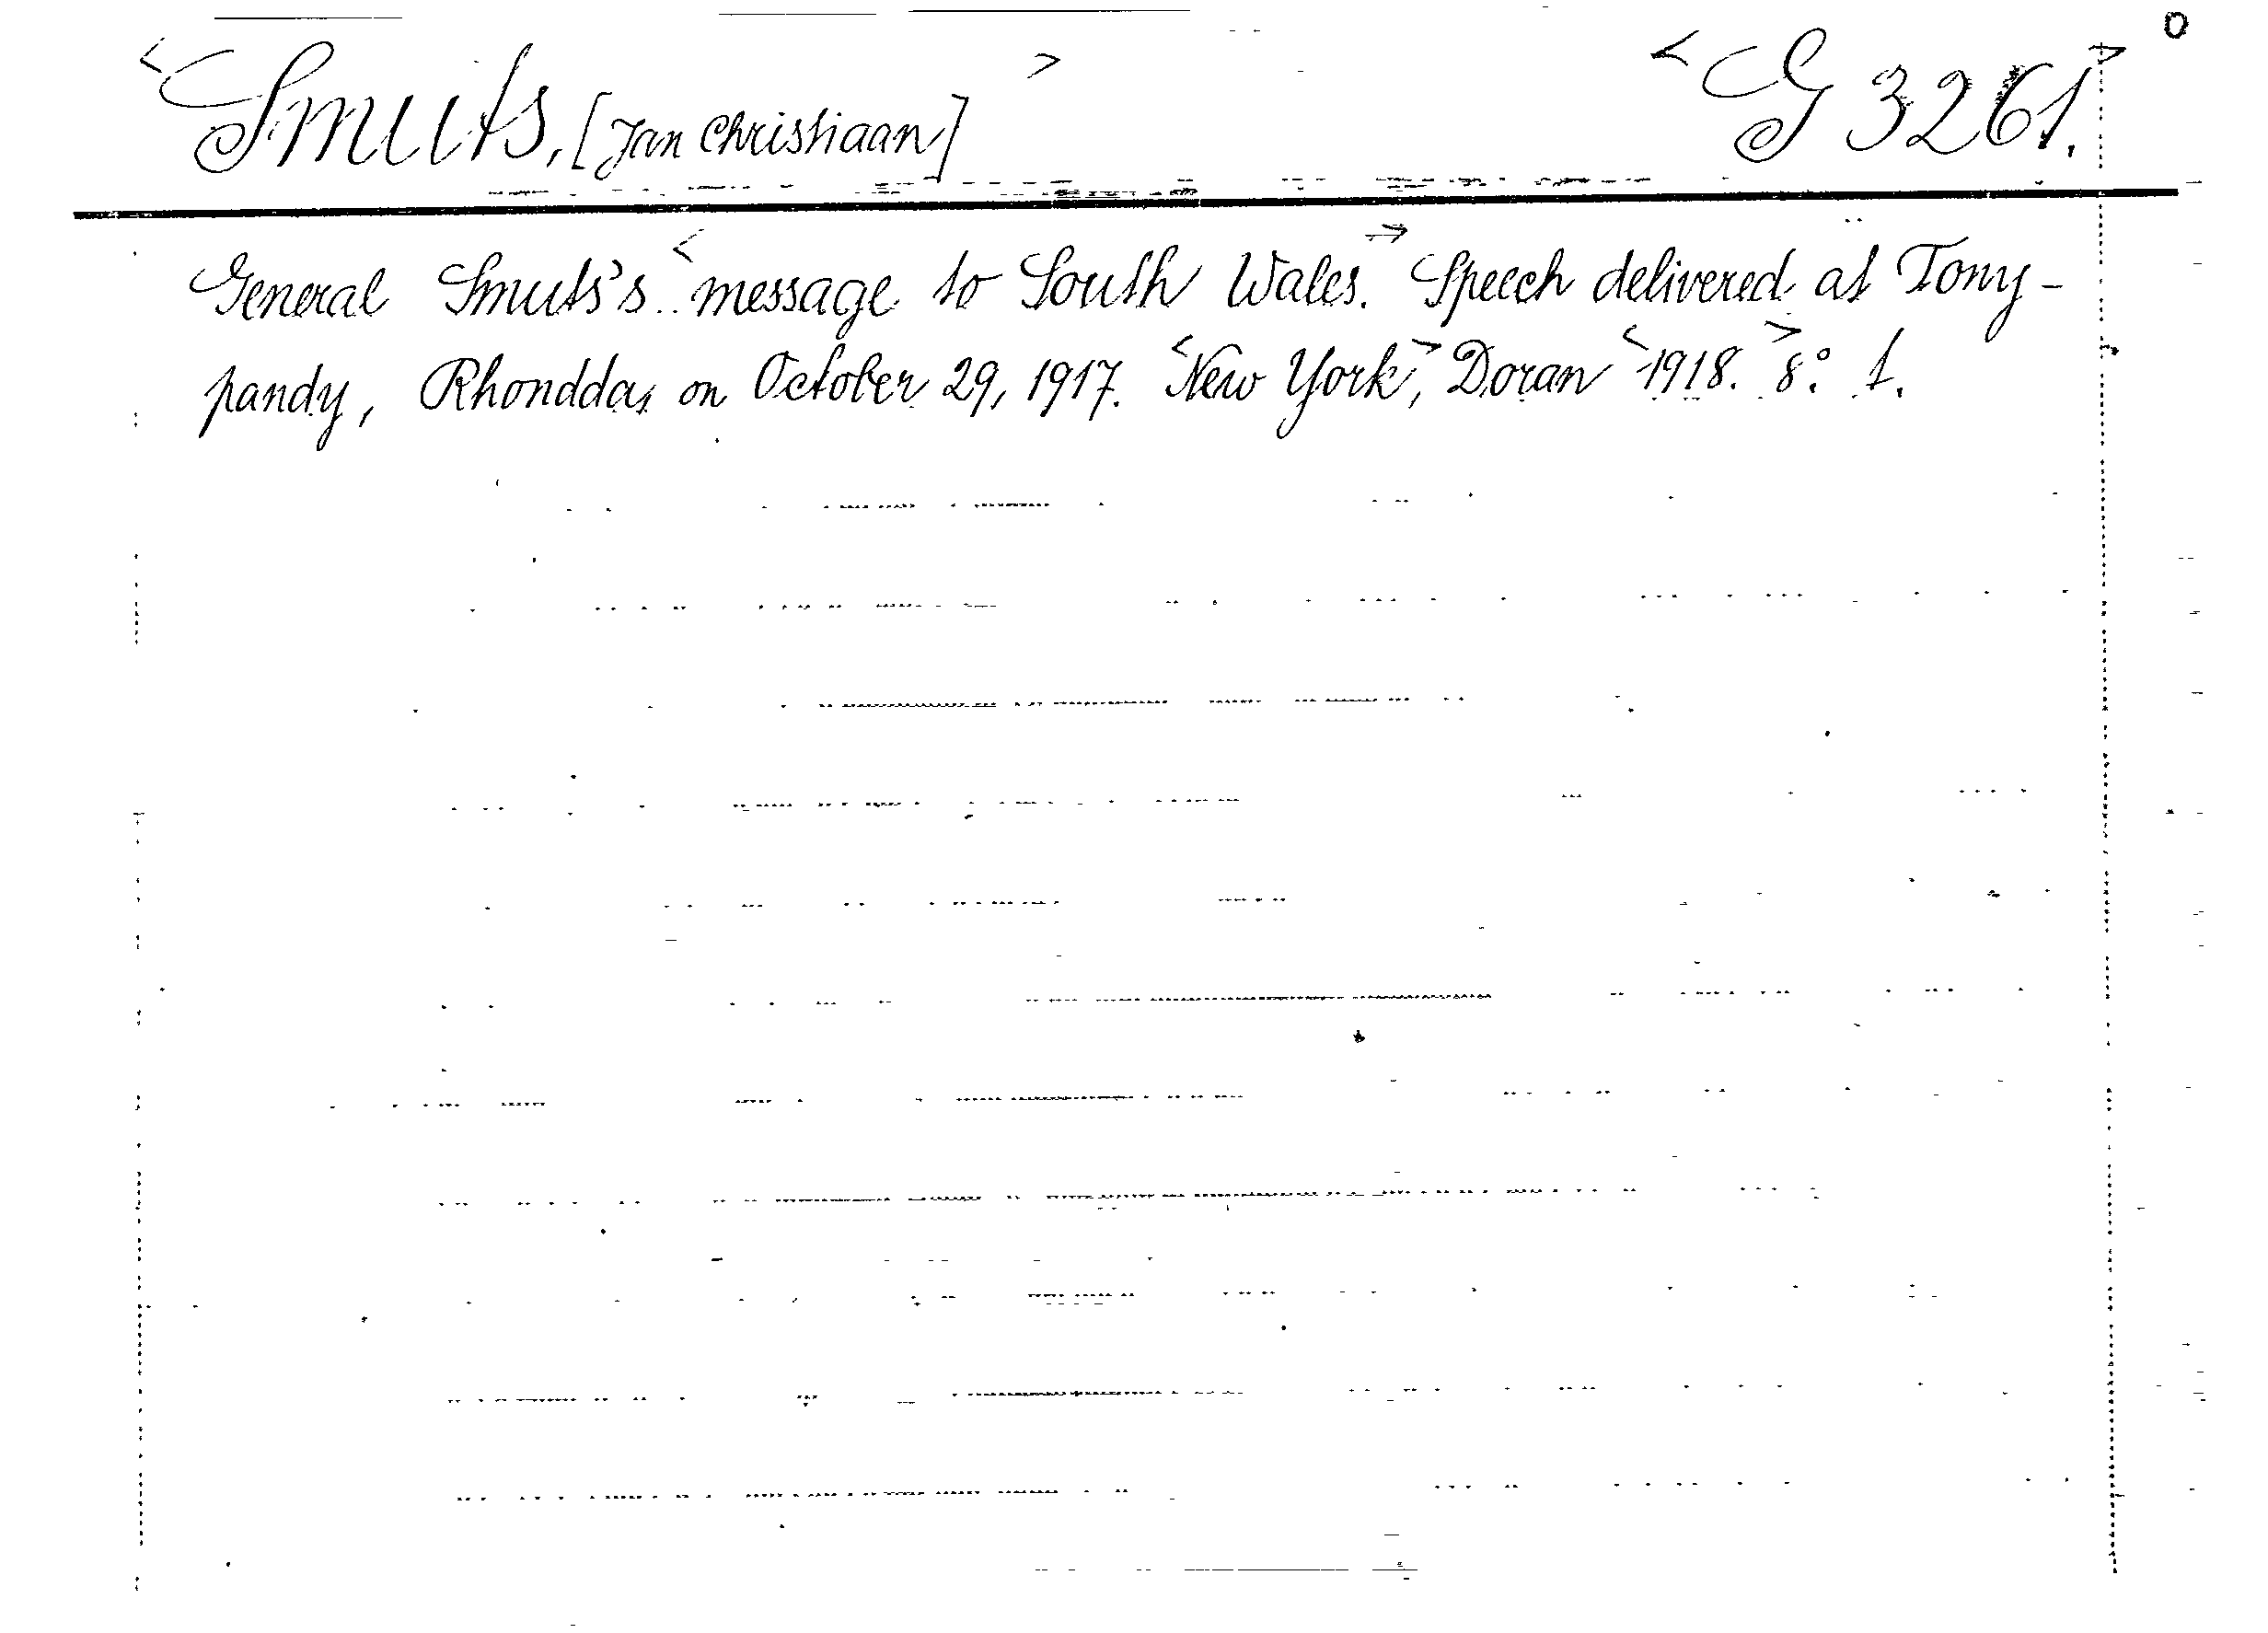 <Smuts, [Jan Christiaan]> <G 3261.> 0
General Smuts's <message to South Wales.> Speech delivered at Tony-
pandy, Rhondda, on October 29, 1917. <New York>, Doran <1918.> 8:° 1.